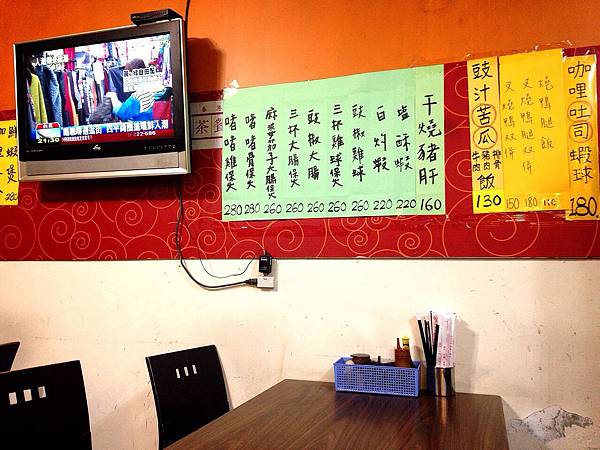 咖哩吐司蝦球
180
燒鴨飯
叉燒鴨腿飯
叉燒鴨双併
150
180
豉汁苦瓜
排骨
豬肉
牛肉
飯
130
干燒豬肝
160
鹽酥蝦
220
白灼蝦
220
豉椒雞球
260
三杯雞球煲
260
豉椒大腸
260
三杯大腸煲
260
麻婆茄子大腸煲
260
啫啫骨煲
280
啫啫雞煲
280
茶餐
21:30
四平興攤擠爆鮮人潮